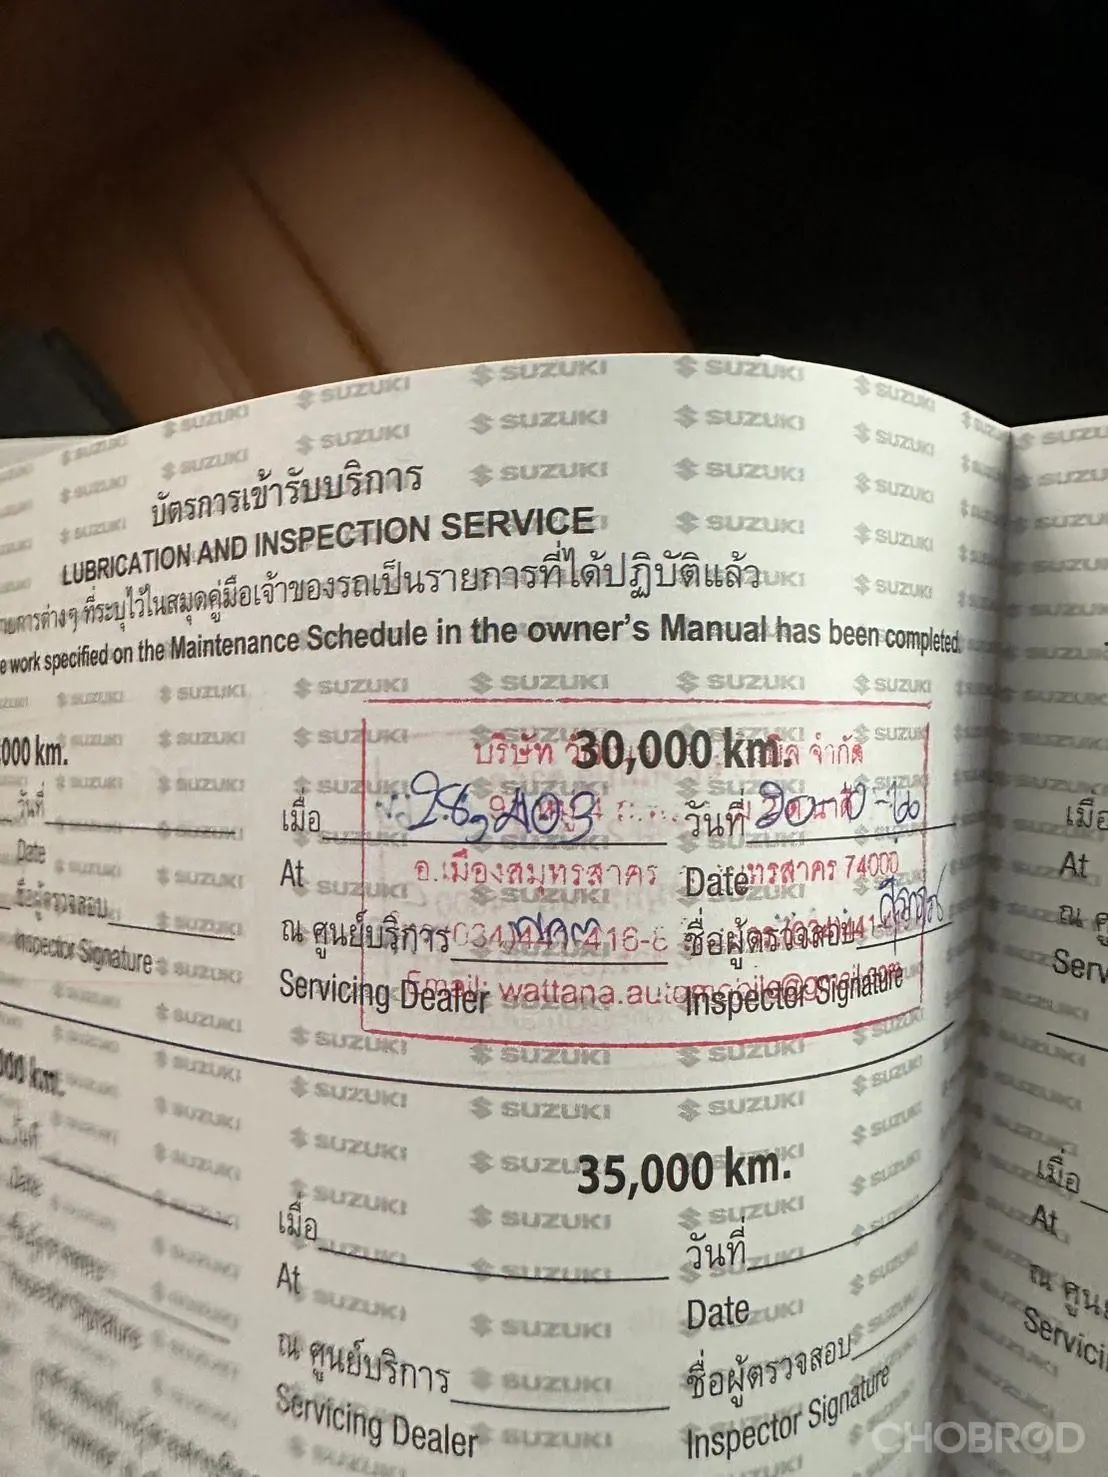 บัตรการเข้ารับบริการ
LUBRICATION AND INSPECTION SERVICE
ต่างๆ ที่ระบุไว้ในสมุดคู่มือเจ้าของรถเป็นรายการที่ได้ปฏิบัติแล้ว
work specified on the Maintenance Schedule in the owner's Manual has been completed.
000 km.
30,000 km.
บริษัท จำกัด
วันที่
เมื่อ
วันที่
เมื่อ
Date
At
อ.เมืองสมุทรสาคร
Date
74000
At
ชื่อผู้ตรวจสอบ
ณ ศูนย์บริการ
ชื่อผู้ตรวจสอบ
Inspector Signature
Servicing Dealer
Email: wattana.automobile@gmail.com
Inspector Signature
000 km.
35,000 km.
วันที่
เมื่อ
วันที่
เมื่อ
Date
At
Date
At
ณ ศูนย์บริการ
ชื่อผู้ตรวจสอบ
Inspector Signature
Servicing Dealer
Inspector Signature
SUZUKI
CHOBROD